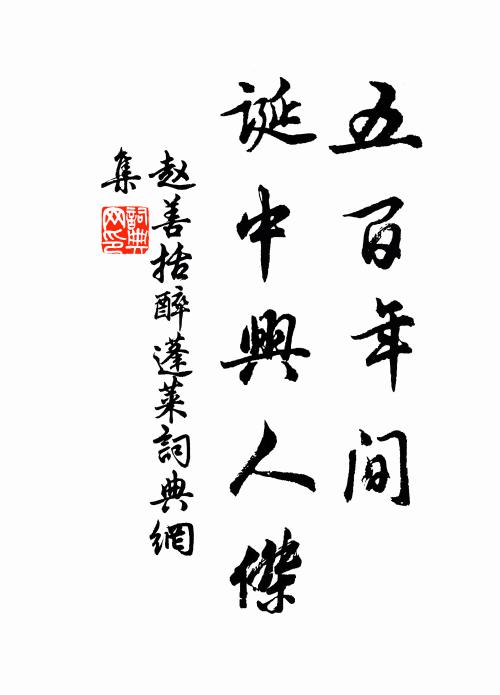 五百年间
诞中興人傑
赵善括醉蓬莱詞典網
集
詞典
网印